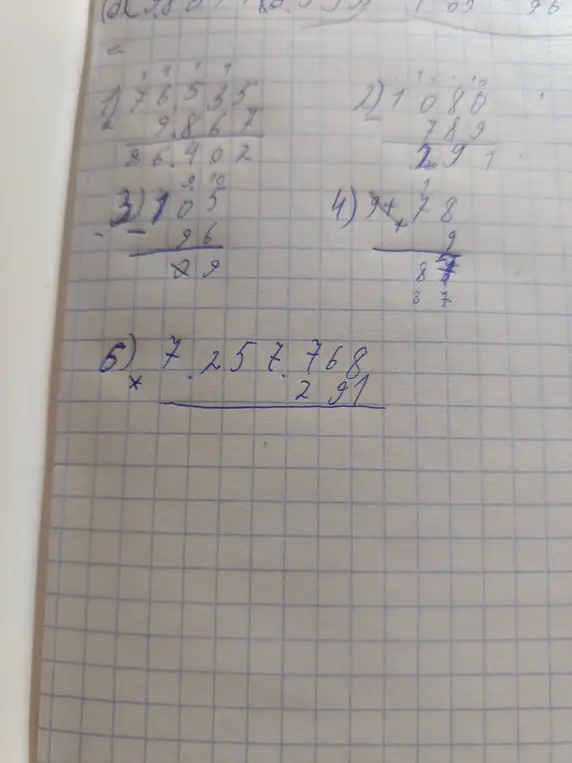 1) 76535
9.867
86.402
2) 1080
- 789
291
3) 105
- 96
09
4) 9+ 78
+ 9
87
87
6) 7.257.768
× 291